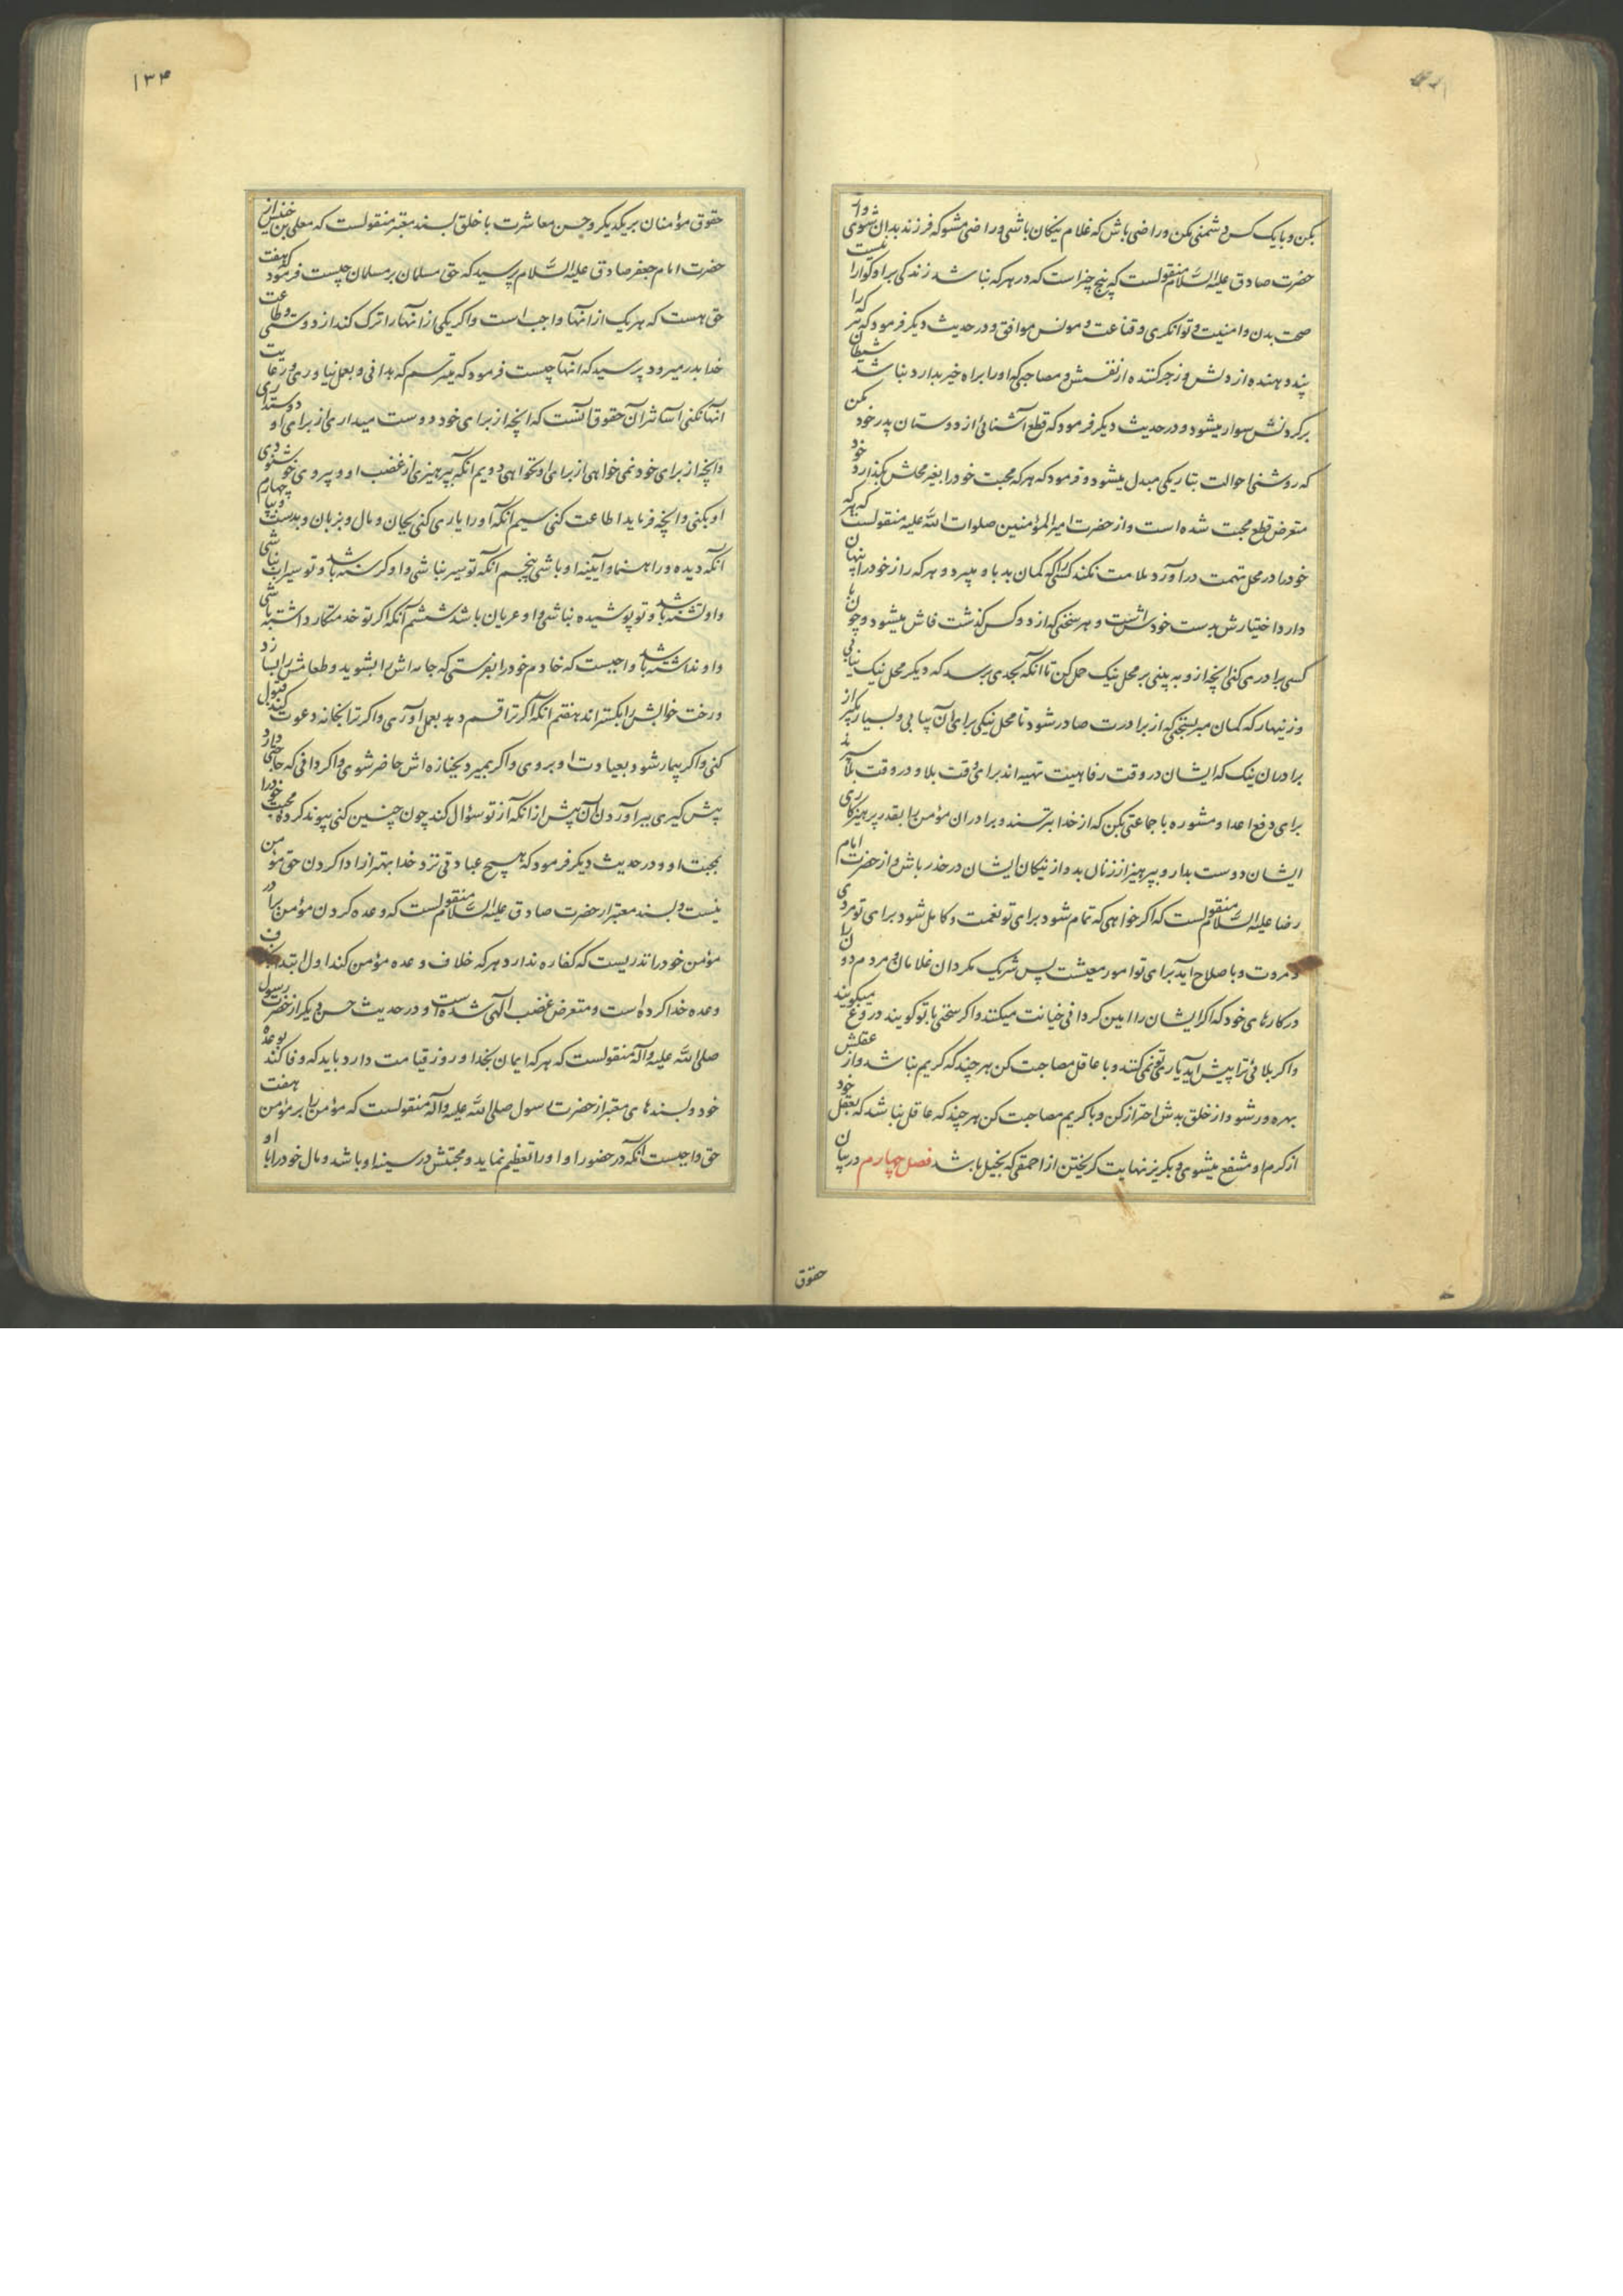 بکن و با یک کس دشمنی مکن و راضی باش که غلام نیکان باشی و راضی مشو که فرزند بدان شوی و از
حضرت صادق علیه السلام منقولست که پنج چیز است که در هر که نباشد زندگی بر او گوارا نیست
صحت بدن و امنیت و توانگری و قناعت و مونس موافق و در حدیث دیگر فرمود که هر که را
پند دهنده از دلش و زجر کننده از نفسش و مصاحبی که او را براه خیر بدارد نباشد شیطان
بر گردنش سوار میشود و در حدیث دیگر فرمود که قطع آشنائی از دوستان پدر خود مکن
که روشنی احوالت بتاریکی مبدل میشود و فرمود که هر که محبت خود را بغیر محلش بگذارد خود
متعرض قطع محبت شده است و از حضرت امیر المؤمنین صلوات الله علیه منقولست که هر که
خود را در محل تهمت در آورد ملامت نکند کسی را که گمان بد باو میبرد و هر که راز خود را پنهان
دارد اختیارش بدست خودش است و هر سخنی که از دو کس گذشت فاش میشود و چون با
کسی برادری کنی انچه از و به بینی بر محل نیک حمل کن تا آنکه بحدی برسد که دیگر محل نیک نیابی
و زینهار که گمان مبر بسخنی که از برادرت صادر شود تا محل نیکی برای آن بیابی و بسیار بگیر از
برادران نیک که ایشان در وقت رفاهیت تهیه اند برای وقت بلا و در وقت بلا سپرند
برای دفع اعدا و مشوره با جماعتی بکن که از خدا بترسند و برادران مؤمن را بقدر پرهیزکاری
ایشان دوست بدار و بپرهیز از زنان بد و از نیکان ایشان در حذر باش و از حضرت امام
رضا علیه السلام منقولست که اگر خواهی که تمام شود برای تو نعمت و کامل شود برای تو مردی
و مروت و باصلاح آید برای تو امور معیشت پس شریک مگردان غلامان و مردم دون را
در کارهای خود که اگر ایشان را امین گردانی خیانت میکنند و اگر سخنی با تو گویند دروغ میگویند
و اگر بلائی ترا پیش آید یاریت نمی کنند و با عاقل مصاحبت کن هر چند که کریم نباشد و از عقلش
بهره ور شو و از خلق بدش احتراز کن و با کریم مصاحبت کن هر چند که عاقل نباشد که بعقل خود
از کرم او منتفع میشوی و بگریز نهایت گریختن از احمقی که بخیل باشد فصل چهارم در بیان
حقوق
۱۳۴
حقوق مؤمنان بر یکدیگر و حسن معاشرت با خلق بسند معتبر منقولست که معلی بن خنیس از
حضرت امام جعفر صادق علیه السلام پرسید که حق مسلمان بر مسلمان چیست فرمود که هفت
حق هست که هر یک از انها واجب است و اگر یکی از انها را ترک کند از دوستی و طاعت
خدا بدر میرود پرسید که انها چیست فرمود که میترسم که بدانی و بعمل نیاوری و رعایت
انها نکنی آسانتر آن حقوق آنست که انچه از برای خود دوست میداری از برای او دوستداری
و انچه از برای خود نمی خواهی از برای او نخواهی دویم آنکه بپرهیزی از غضب او و پیروی خوشنودی
او بکنی و انچه فرماید اطاعت کنی سیم آنکه او را یاری کنی بجان و مال و بزبان و بدست و پا چهارم
آنکه دیده و راهنما و آیینه او باشی پنجم آنکه تو سیر نباشی و او گرسنه باشد و تو سیراب نباشی
و او تشنه باشد و تو پوشیده نباشی و او عریان باشد ششم آنکه اگر تو خدمتکار داشته باشی
و او نداشته باشد واجبست که خادم خود را بفرستی که جامه اش را بشوید و طعامش را بسازد
و رخت خوابش را بگستراند هفتم آنکه اگر ترا قسم دهد بعمل آوری و اگر ترا بخانه دعوت کند قبول
کنی و اگر بیمار شود بعیادت او بروی و اگر بمیرد بجنازه اش حاضر شوی و اگر دانی که حاجتی دارد
پیش گیری ببر آوردن آن پیش از انکه از تو سؤال کند چون چنین کنی پیوند کرده محبت خود را
بمحبت او و در حدیث دیگر فرمود که هیچ عبادتی نزد خدا بهتر از ادا کردن حق مؤمن
نیست و بسند معتبر از حضرت صادق علیه السلام منقولست که وعده کردن مؤمن برادر
مؤمن خود را نذریست که کفاره ندارد و هر که خلاف وعده مؤمن کند اول ابتدا بخلف
وعده خدا کرده است و متعرض غضب الهی شده است و در حدیث حسن دیگر از حضرت رسول
صلی الله علیه و آله منقولست که هر که ایمان بخدا و روز قیامت دارد باید که وفا کند بوعده
خود و بسندهای معتبر از حضرت رسول صلی الله علیه و آله منقولست که مؤمن را بر مؤمن هفت
حق واجبست آنکه در حضور او او را تعظیم نماید و محبتش در سینه او باشد و مال خود را با او